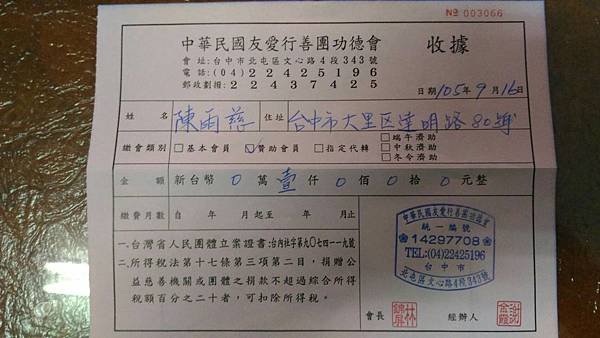 № 003066
中華民國友愛行善團功德會 收據
會址:台中市北屯區文心路4段343號
電話:(04)22425196
郵政劃撥:22437425
日期105年9月16日
姓名 陳雨慈 住址 台中市大里区達明路80號
繳會類別 □基本會員 ☑贊助會員 □指定代轉 □端午濟助 □中秋濟助 □冬令濟助
金額 新台幣0萬壹仟0佰0拾0元整
繳費月數 自 年 月起至 年 月止
一.台灣省人民團體立案證書:台內社字第九〇七四一一九號
二.所得稅法第十七條第三項第二目,捐贈公
益慈善機關或團體之捐款不超過綜合所得
稅額百分之二十者,可扣除所得稅。
中華民國友愛行善團功德會
統一編號
14297708
TEL:(04)22425196
台中市
北屯區文心路4段343號
會長 經辦人